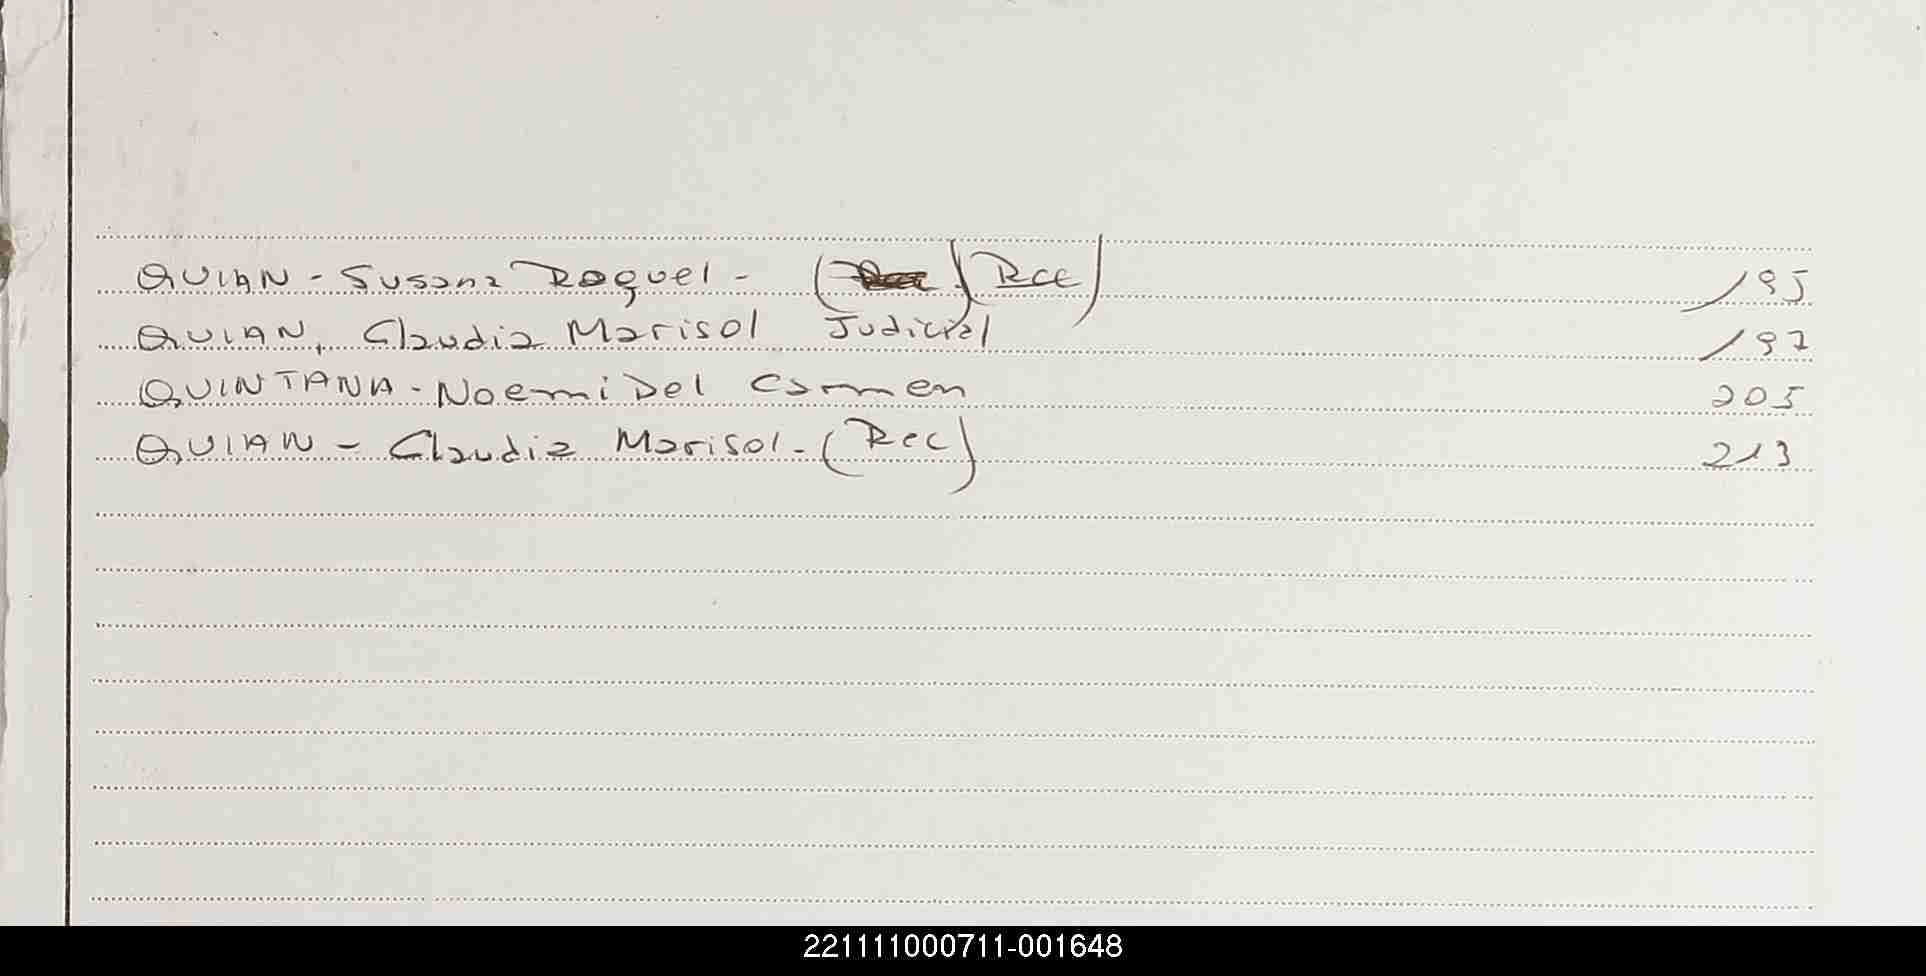 QUIAN - Susana Raquel - ( ) (Rec) 195
QUIAN, Claudia Marisol Judicial 197
QUINTANA - Noemi Del Carmen 205
QUIAN - Claudia Marisol - (Rec) 213
221111000711-001648